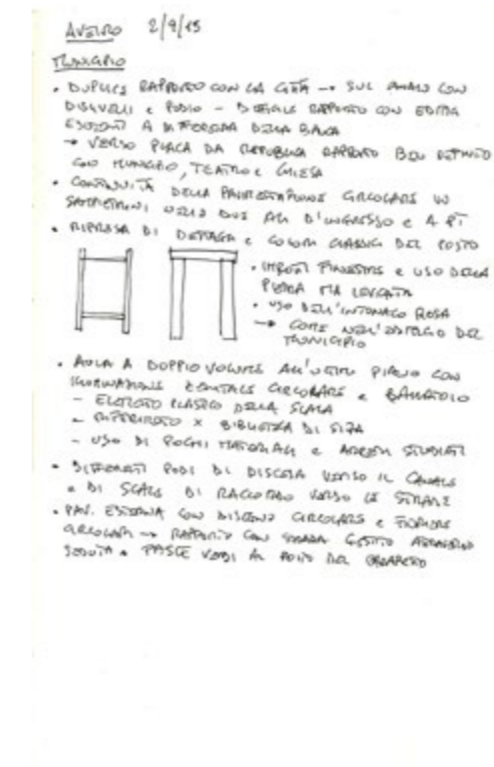 AVEIRO 2/9/15
MUNICIPIO
• DUPLICE RAPPORTO CON LA CITTÀ → SUL CANALE CON
DISLIVELLI E PODIO - DIVERSO RAPPORTO CON EDIFICI
ESISTENTI A DELLA
→ VERSO PLACA DA REPUBLICA RAPPORTO BEN DEFINITO
CON MUNICIPIO, TEATRO E CHIESA
• CONTINUITÀ DELLA PAVIMENTAZIONE CIRCOLARE IN
SAMPIETRINI NELLE DUE ALI D'INGRESSO E A PT
• RIPRESA DI DETTAGLI E COLORI CLASSICI DEL POSTO
• FINESTRE E USO DELLA
PIETRA MA LEVIGATA
• USO DELL'INTONACO ROSA
→ COME NELL'EDIFICIO DEL
MUNICIPIO
• AULA A DOPPIO VOLUME ALL'ULTIMO PIANO CON
ILLUMINAZIONE ZENITALE CIRCOLARE E BALLATOIO
- ELEMENTO PLASTICO DELLA SCALA
- RIFERIMENTO X BIBLIOTECA DI SIZA
- USO DI POCHI MATERIALI E ARREDI STUDIATI
• DIFFERENTI PODI DI DISCESA VERSO IL CANALE
E DI SCALE DI RACCORDO VERSO LE STRADE
• PAV. ESTERNA CON DISEGNO CIRCOLARE E
CIRCOLARI → RAPPORTO CON STRADA GESTITO
SEDUTA E VERDI AL POSTO DEL PARAPETTO